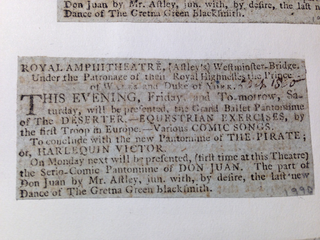 Don Juan by Mr. Astley, jun. with, by desire, the last new
Dance of The Gretna Green blacksmith.
ROYAL AMPHITHEATRE, [Astley's] Westminster-Bridge.
Under the Patronage of their Royal Highnesses the Prince
of WALES and Duke of YORK.
THIS EVENING, Friday, and To-morrow, Sa-
turday, will be presented, the Grand Ballet Pantomime
of The DESERTER.—EQUESTRIAN EXERCISES, by
the first Troop in Europe.—Various COMIC SONGS.
To conclude with the new Pantomime of THE PIRATE;
or, HARLEQUIN VICTOR.
On Monday next will be presented, (first time at this Theatre)
the Serio-Comic Pantomime of DON JUAN. The part of
Don Juan by Mr. Astley, jun. with, by desire, the last new
Dance of The Gretna Green blacksmith.